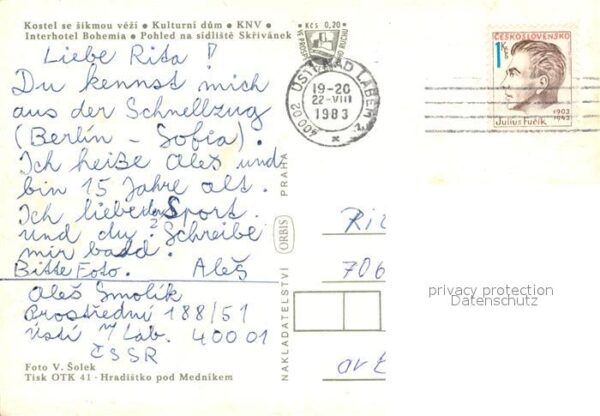 Kostel se šikmou věží • Kulturní dům • KNV •
Interhotel Bohemia • Pohled na sídliště Skřivánek
Liebe Rita !
Du kennst mich
aus der Schnellzug
(Berlin - Sofia).
Ich heiße Aleš und
bin 15 Jahre alt.
Ich liebe den Sport.
und du? Schreibe
mir bald.
Bitte Foto. Aleš
Aleš Smolík
Prostřední 188/51
Ústí n/Lab. 40001
ČSSR
Foto V. Šolek
Tisk OTK 41 - Hradištko pod Medníkem
NAKLADATELSTVÍ ORBIS PRAHA
Kčs 0,20
400 02 ÚSTÍ NAD LABEM 1
19-20
22-VIII
1983
ČESKOSLOVENSKO
1 Kčs
1903
1943
Julius Fučík
706
privacy protection
Datenschutz